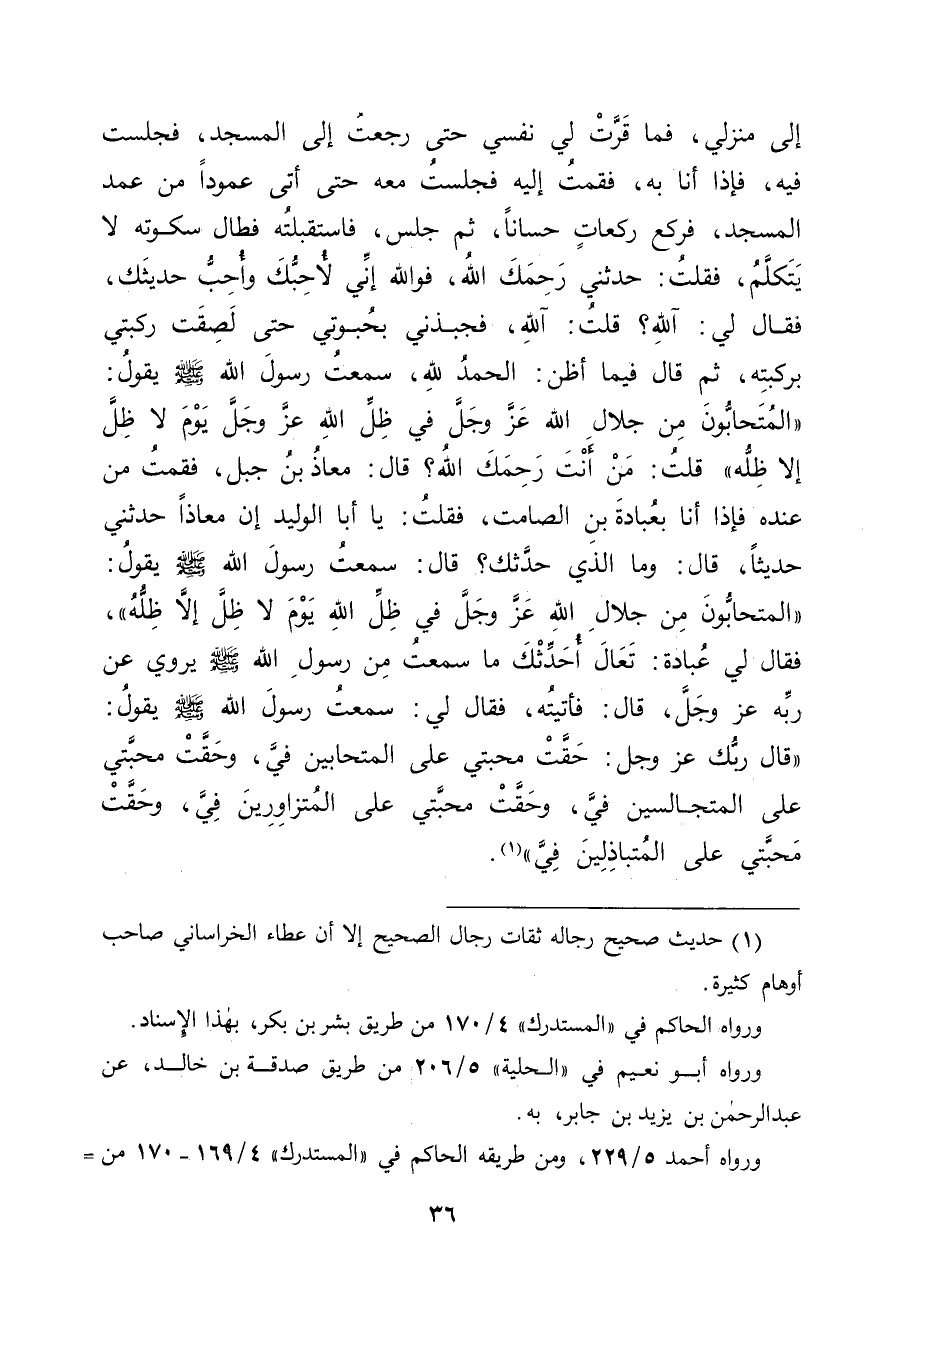 إلى منزلي، فما قَرَّتْ لي نفسي حتى رجعتُ إلى المسجد، فجلست
فيه، فإذا أنا به، فقمتُ إليه فجلستُ معه حتى أتى عموداً من عمد
المسجد، فركع ركعاتٍ حساناً، ثم جلس، فاستقبلتُه فطال سكوته لا
يَتَكلَّمُ، فقلتُ: حدثني رَحِمَكَ اللهُ، فوالله إنِّي لأُحِبُّكَ وأُحِبُّ حديثَك،
فقال لي: آللهِ؟ قلتُ: آللهِ، فجبذني بحُبوتي حتى لَصِقَت ركبتي
بركبتِه، ثم قال فيما أظن: الحمدُ للهِ، سمعتُ رسولَ الله ﷺ يقولُ:
«المُتَحابُّونَ مِن جلالِ الله عَزَّ وجَلَّ في ظِلِّ اللهِ عزَّ وجَلَّ يَوْمَ لا ظِلَّ
إلا ظِلُّه» قلتُ: مَنْ أَنْتَ رَحِمَكَ اللهُ؟ قال: معاذُ بنُ جبل، فقمتُ من
عنده فإذا أنا بعُبادةَ بنِ الصامت، فقلتُ: يا أبا الوليد إن معاذاً حدثني
حديثاً، قال: وما الذي حدَّثك؟ قال: سمعتُ رسولَ الله ﷺ يقولُ:
«المتحابُّونَ مِن جلالِ اللهِ عَزَّ وجَلَّ في ظِلِّ اللهِ يَوْمَ لا ظِلَّ إلاَّ ظِلُّهُ»،
فقال لي عُبادة: تَعَالَ أُحَدِّثْكَ ما سمعتُ مِن رسولِ الله ﷺ يروي عن
ربِّه عز وجَلَّ، قال: فأتيتُه، فقال لي: سمعتُ رسولَ الله ﷺ يقولُ:
«قال ربُّك عز وجل: حَقَّتْ محبتي على المتحابين فيَّ، وحَقَّتْ محبَّتي
على المتجالسين فيَّ، وحَقَّتْ محبَّتي على المُتزاوِرِينَ فِيَّ، وحَقَّتْ
مَحبَّتي على المُتباذِلِينَ فِيَّ»(١).
(١) حديث صحيح رجاله ثقات رجال الصحيح إلا أن عطاء الخراساني صاحب
أوهام كثيرة.
ورواه الحاكم في «المستدرك» ٤/ ١٧٠ من طريق بشر بن بكر، بهٰذا الإِسناد.
ورواه أبو نعيم في «الحلية» ٢٠٦/٥ من طريق صدقة بن خالد، عن
عبدالرحمٰن بن يزيد بن جابر، به.
ورواه أحمد ٢٢٩/٥، ومن طريقه الحاكم في «المستدرك» ١٦٩/٤ - ١٧٠ من =
٣٦